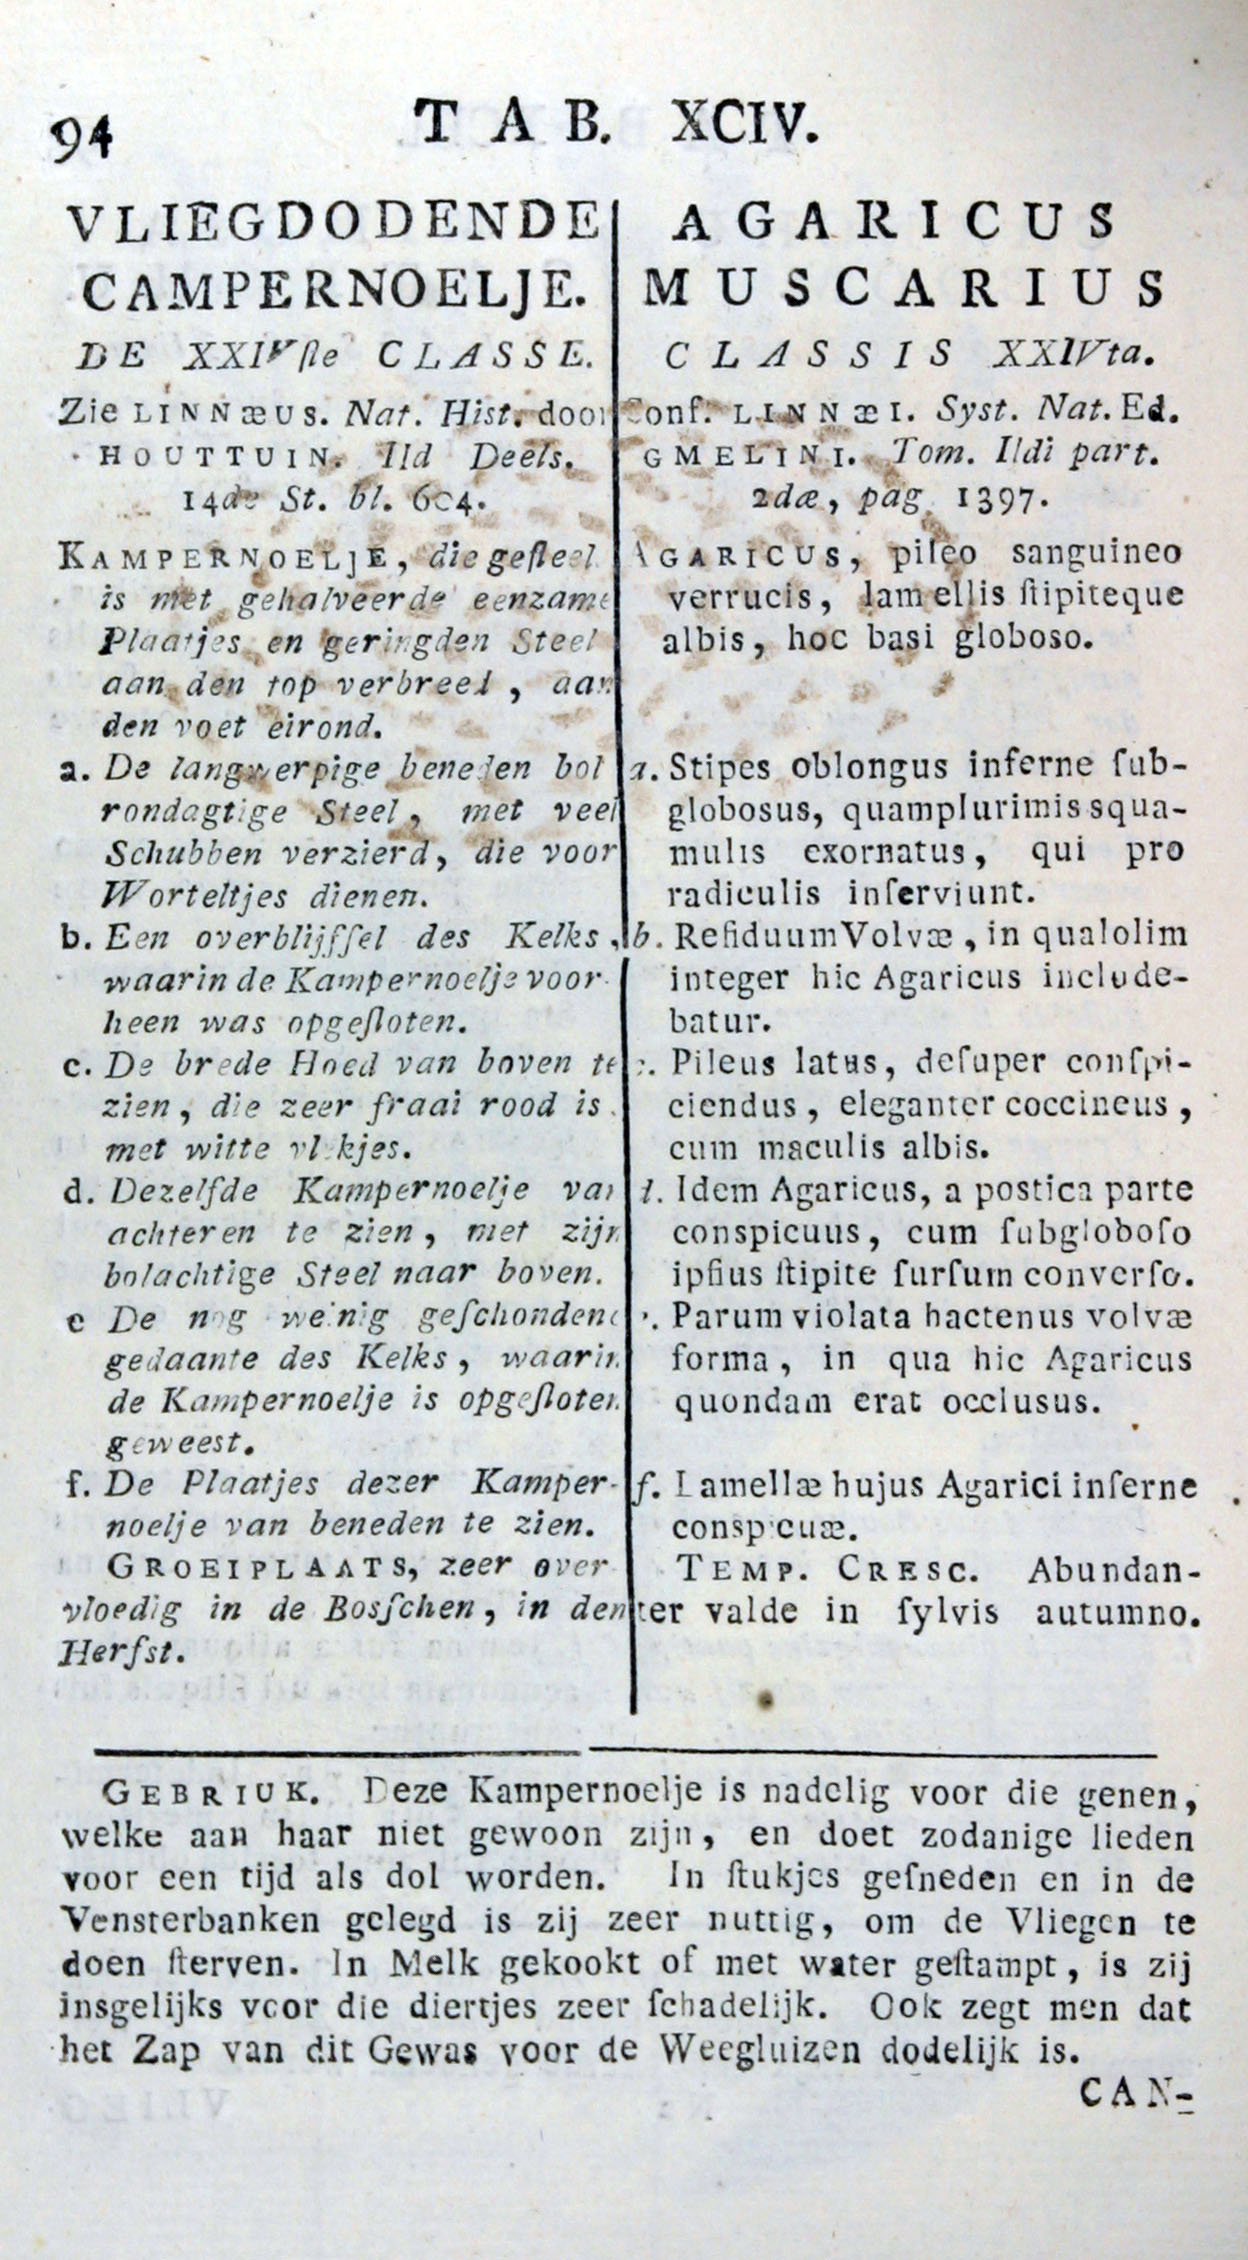 94
TAB. XCIV.
VLIEGDODENDE
CAMPERNOELJE.
DE XXIVſte CLASSE.
Zie LINNÆUS. Nat. Hist. door
HOUTTUIN. IId Deels.
14de St. bl. 604.
KAMPERNOELJE, die geſteel
is met gehalveerde eenzame
Plaatjes en geringden Steel
aan den top verbreed, aan
den voet eirond.
a. De langwerpige beneden bol
rondagtige Steel, met veel
Schubben verzierd, die voor
Worteltjes dienen.
b. Een overblijfſel des Kelks,
waarin de Kampernoelje voor-
heen was opgeſloten.
c. De brede Hoed van boven te
zien, die zeer fraai rood is
met witte vlekjes.
d. Dezelfde Kampernoelje van
achteren te zien, met zijn
bolachtige Steel naar boven.
e De nog weinig geſchondene
gedaante des Kelks, waarin
de Kampernoelje is opgeſloten
geweest.
f. De Plaatjes dezer Kamper-
noelje van beneden te zien.
GROEIPLAATS, zeer over
vloedig in de Bosſchen, in den
Herfst.
AGARICUS
MUSCARIUS
CLASSIS XXIVta.
Conf. LINNÆI. Syst. Nat. Ed.
GMELINI. Tom. IIdi part.
2dæ, pag 1397.
AGARICUS, pileo sanguineo
verrucis, lamellis ſtipiteque
albis, hoc basi globoso.
a. Stipes oblongus inferne ſub-
globosus, quamplurimis squa-
mulis exornatus, qui pro
radiculis inſerviunt.
b. Reſiduum Volvæ, in qua olim
integer hic Agaricus include-
batur.
c. Pileus latus, deſuper conſpi-
ciendus, eleganter coccineus,
cum maculis albis.
d. Idem Agaricus, a postica parte
conspicuus, cum ſubgloboſo
ipſius ſtipite ſurſum converſo.
e. Parum violata hactenus volvæ
forma, in qua hic Agaricus
quondam erat occlusus.
f. Lamellæ hujus Agarici inferne
conspicuæ.
TEMP. CRESC. Abundan-
ter valde in ſylvis autumno.
GEBRIUK. Deze Kampernoelje is nadelig voor die genen,
welke aan haar niet gewoon zijn, en doet zodanige lieden
voor een tijd als dol worden. In ſtukjes geſneden en in de
Vensterbanken gelegd is zij zeer nuttig, om de Vliegen te
doen ſterven. In Melk gekookt of met water geſtampt, is zij
insgelijks voor die diertjes zeer ſchadelijk. Ook zegt men dat
het Zap van dit Gewas voor de Weegluizen dodelijk is.
CAN-